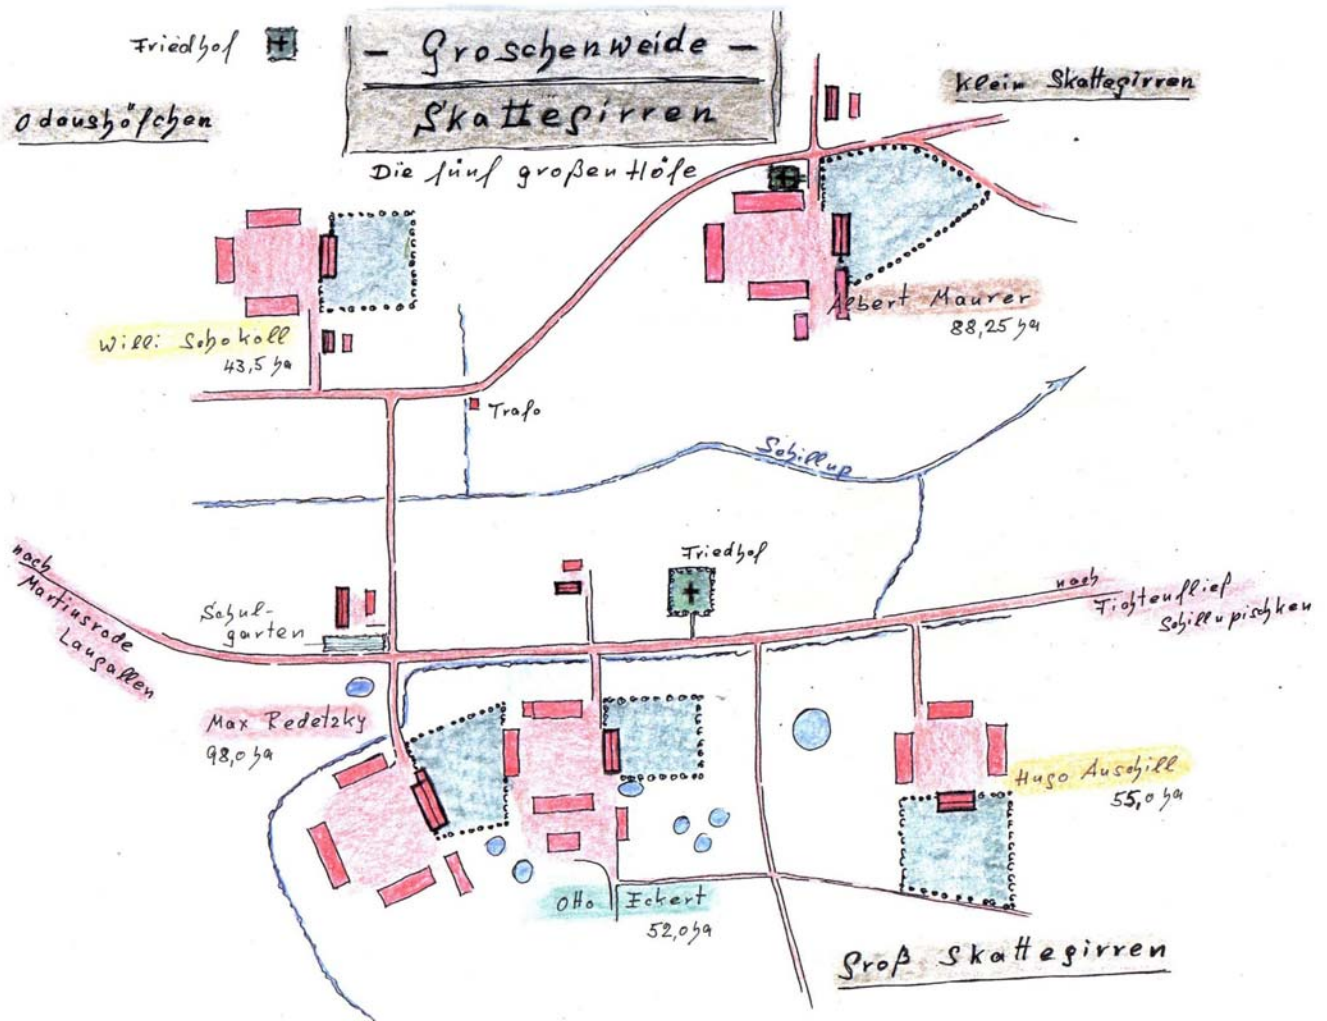 Friedhof
- Groschenweide -
Skattegirren
Die fünf großen Höfe
Klein Skattegirren
Odaushöfchen
Albert Maurer
88,25 ha
Willi Schokoll
43,5 ha
Trafo
Schillup
nach
Martinsrode
Laugallen
Friedhof
Schul-
garten
nach
Fichtenfließ
Schillupischken
Max Redetzky
98,0 ha
Hugo Auschill
55,0 ha
Otto Eckert
52,0 ha
Groß Skattegirren